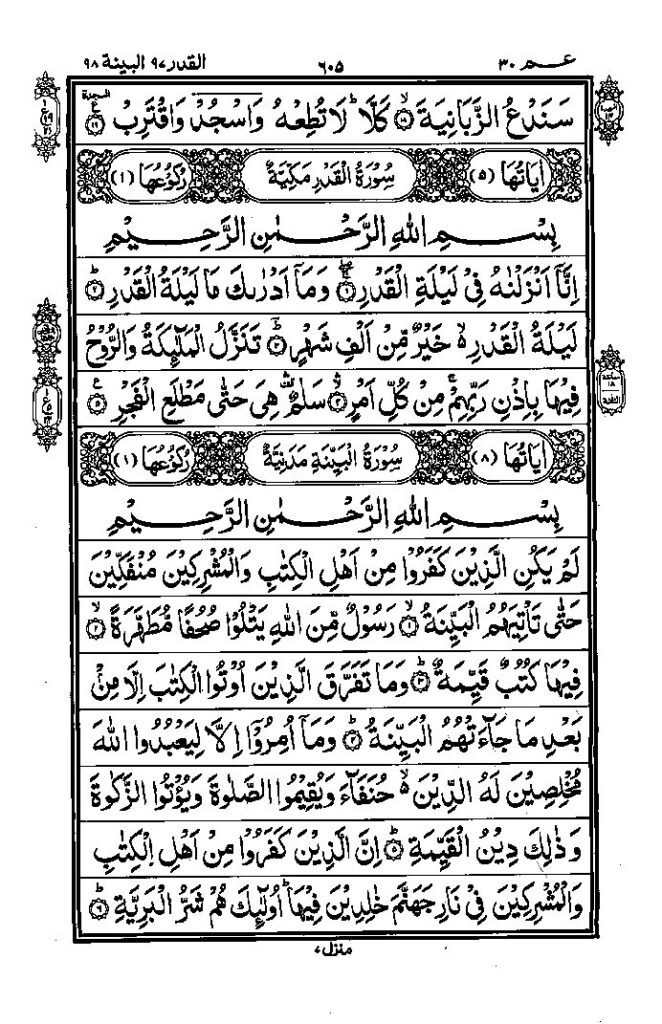 عـــم ٣٠ ٦٠٥ القدر ٩٧ البينة ٩٨
سَنَدْعُ الزَّبَانِيَةَ ۙ﴿۱۸﴾ كَلَّا ؕ لَا تُطِعْهُ وَاسْجُدْ وَاقْتَرِبْ ﴿۱۹﴾ السجدة
اٰيَاتُهَا (٥) سُوْرَةُ الْقَدْرِ مَكِّيَّةٌ رُكُوْعُهَا (١)
بِسْـــمِ اللهِ الرَّحْـمٰنِ الرَّحِـــيْمِ
اِنَّاۤ اَنْزَلْنٰهُ فِيْ لَيْلَةِ الْقَدْرِ ﴿۱﴾ وَمَاۤ اَدْرٰىكَ مَا لَيْلَةُ الْقَدْرِ ؕ﴿۲﴾
لَيْلَةُ الْقَدْرِ ۙ خَيْرٌ مِّنْ اَلْفِ شَهْرٍ ؕ﴿۳﴾ تَنَزَّلُ الْمَلٰٓئِكَةُ وَالرُّوْحُ
فِيْهَا بِاِذْنِ رَبِّهِمْ ۚ مِنْ كُلِّ اَمْرٍ ۙ﴿۴﴾ سَلٰمٌ ۛ هِيَ حَتّٰى مَطْلَعِ الْفَجْرِ ﴿۵﴾
اٰيَاتُهَا (٨) سُوْرَةُ الْبَيِّنَةِ مَدَنِيَّةٌ رُكُوْعُهَا (١)
بِسْـــمِ اللهِ الرَّحْـمٰنِ الرَّحِـــيْمِ
لَمْ يَكُنِ الَّذِيْنَ كَفَرُوْا مِنْ اَهْلِ الْكِتٰبِ وَالْمُشْرِكِيْنَ مُنْفَكِّيْنَ
حَتّٰى تَاْتِيَهُمُ الْبَيِّنَةُ ۙ﴿۱﴾ رَسُوْلٌ مِّنَ اللهِ يَتْلُوْا صُحُفًا مُّطَهَّرَةً ۙ﴿۲﴾
فِيْهَا كُتُبٌ قَيِّمَةٌ ؕ﴿۳﴾ وَمَا تَفَرَّقَ الَّذِيْنَ اُوْتُوا الْكِتٰبَ اِلَّا مِنْۢ
بَعْدِ مَا جَآءَتْهُمُ الْبَيِّنَةُ ؕ﴿۴﴾ وَمَاۤ اُمِرُوْۤا اِلَّا لِيَعْبُدُوا اللهَ
مُخْلِصِيْنَ لَهُ الدِّيْنَ ۙ حُنَفَآءَ وَيُقِيْمُوا الصَّلٰوةَ وَيُؤْتُوا الزَّكٰوةَ
وَذٰلِكَ دِيْنُ الْقَيِّمَةِ ؕ﴿۵﴾ اِنَّ الَّذِيْنَ كَفَرُوْا مِنْ اَهْلِ الْكِتٰبِ
وَالْمُشْرِكِيْنَ فِيْ نَارِ جَهَنَّمَ خٰلِدِيْنَ فِيْهَا ؕ اُولٰٓئِكَ هُمْ شَرُّ الْبَرِيَّةِ ؕ﴿۶﴾
منزل ٧